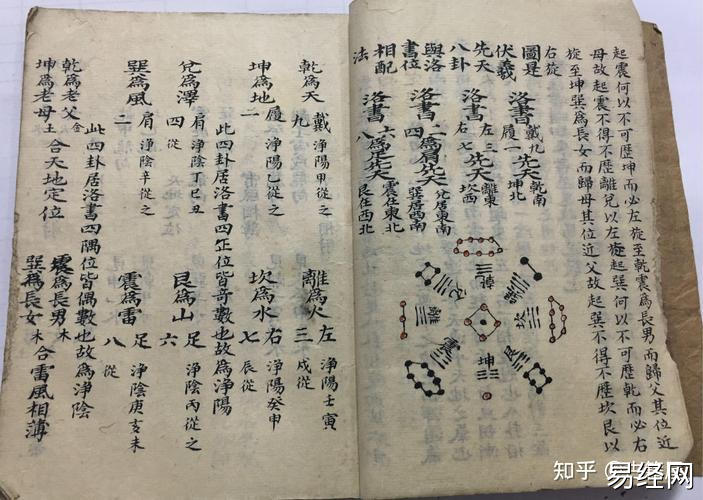 起震何以不可歷坤而必左旋至乾震為長男而歸父其位近
母故起震不得不歷離兌以左旋起巽何以不可歷乾而必右
旋至坤巽為長女而歸母其位近父故起巽不得不歷坎艮以
右旋
圖是
伏羲
先天
八卦
與洛
書位
相配
法
洛書戴九履一先天乾南坤北
洛書左三右七先天離東坎西
洛書二四為肩先天兌居東南巽居西南
洛書六八為足先天震在東北艮在西北
乾
坎
離
震
艮
坤
乾為天九戴淨陽甲從之
離為火左三淨陽壬寅戌從
坤為地二履淨陽乙從之
坎為水右七淨陽癸申辰從
此四卦居洛書四正位皆奇數也故為淨陽
兌為澤四肩淨陰丁巳丑從
艮為山足六淨陰丙從之
巽為風二肩淨陰辛從之
震為雷足八淨陰庚亥未從
此四卦居洛書四隅位皆偶數也故為淨陰
乾為老父金
坤為老母土合天地定位
震為長男木
巽為長女木合雷風相薄
知乎
易经网